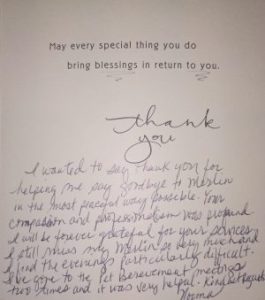 May every special thing you do
bring blessings in return to you.
thank
you
I wanted to say thank you for
helping me say goodbye to Merlin
in the most peaceful way possible. Your
compassion and professionalism was profound
I will be forever grateful for your services
I still miss my Merlin so very much and
I find the evenings particularly difficult.
I've gone to the Pet Bereavement meetings
two times and it was very helpful. Kindest regards